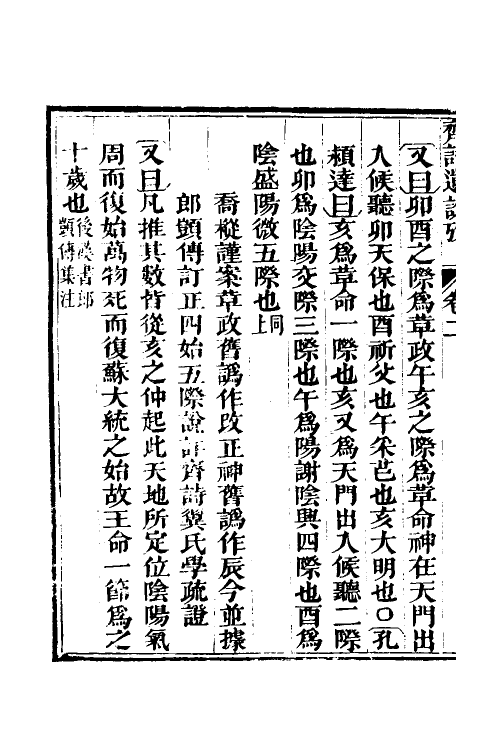 齊詩遺說攷　卷二
又曰卯酉之際爲革政午亥之際爲革命神在天門出
入候聽卯天保也酉祈父也午采芑也亥大明也〇孔
穎達曰亥爲革命一際也亥又爲天門出入候聽二際
也卯爲陰陽交際三際也午爲陽謝陰興四際也酉爲
陰盛陽微五際也同上
喬樅謹案革政舊譌作改正神舊譌作辰今並據
郎顗傳訂正四始五際說詳齊詩翼氏學疏證
又曰凡推其數皆從亥之仲起此天地所定位陰陽氣
周而復始萬物死而復蘇大統之始故王命一節爲之
十歲也後漢書郎顗傳集注